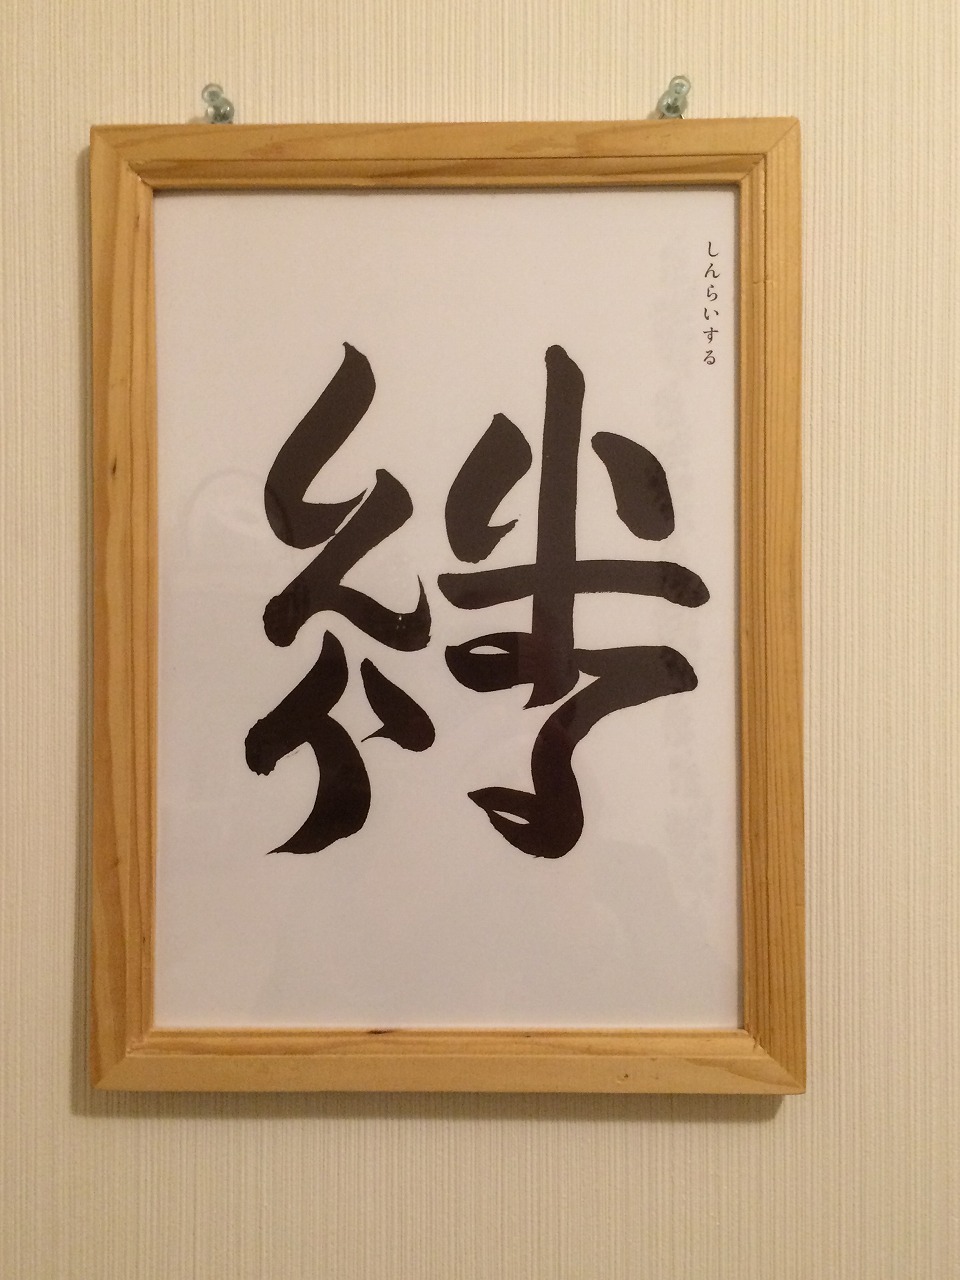 しんらいする
絆